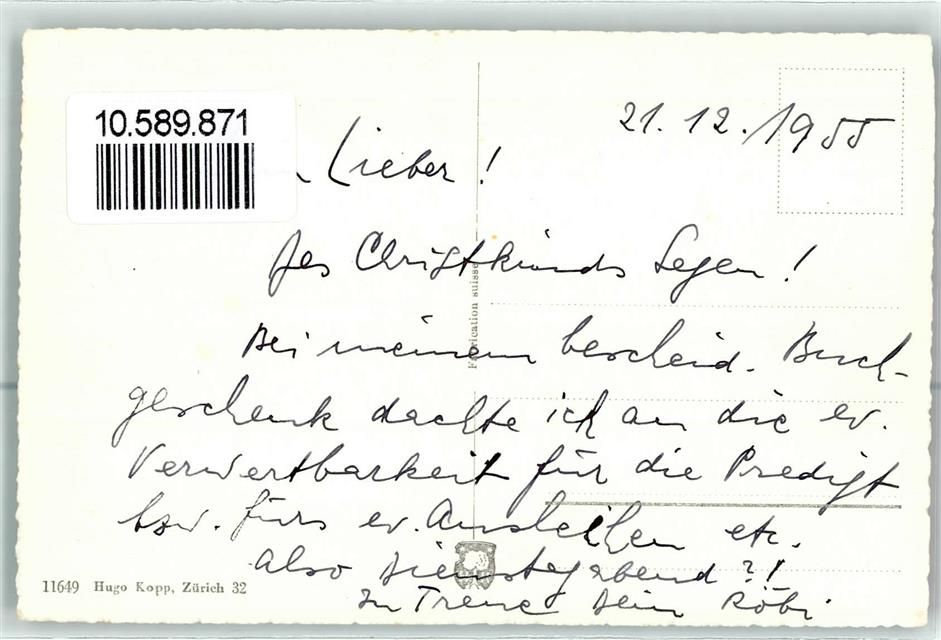 10.589.871
21.12.1955
Lieber!
Des Christkinds Segen!
Bei meinem bescheid. Buch-
geschenk dachte ich an die ev.
Verwertbarkeit für die Predigt
bzw. fürs ev. Ausleihen etc.
Also Dienstagabend?!
In Treue Dein Röbi
Fabrication suisse
11649 Hugo Kopp, Zürich 32